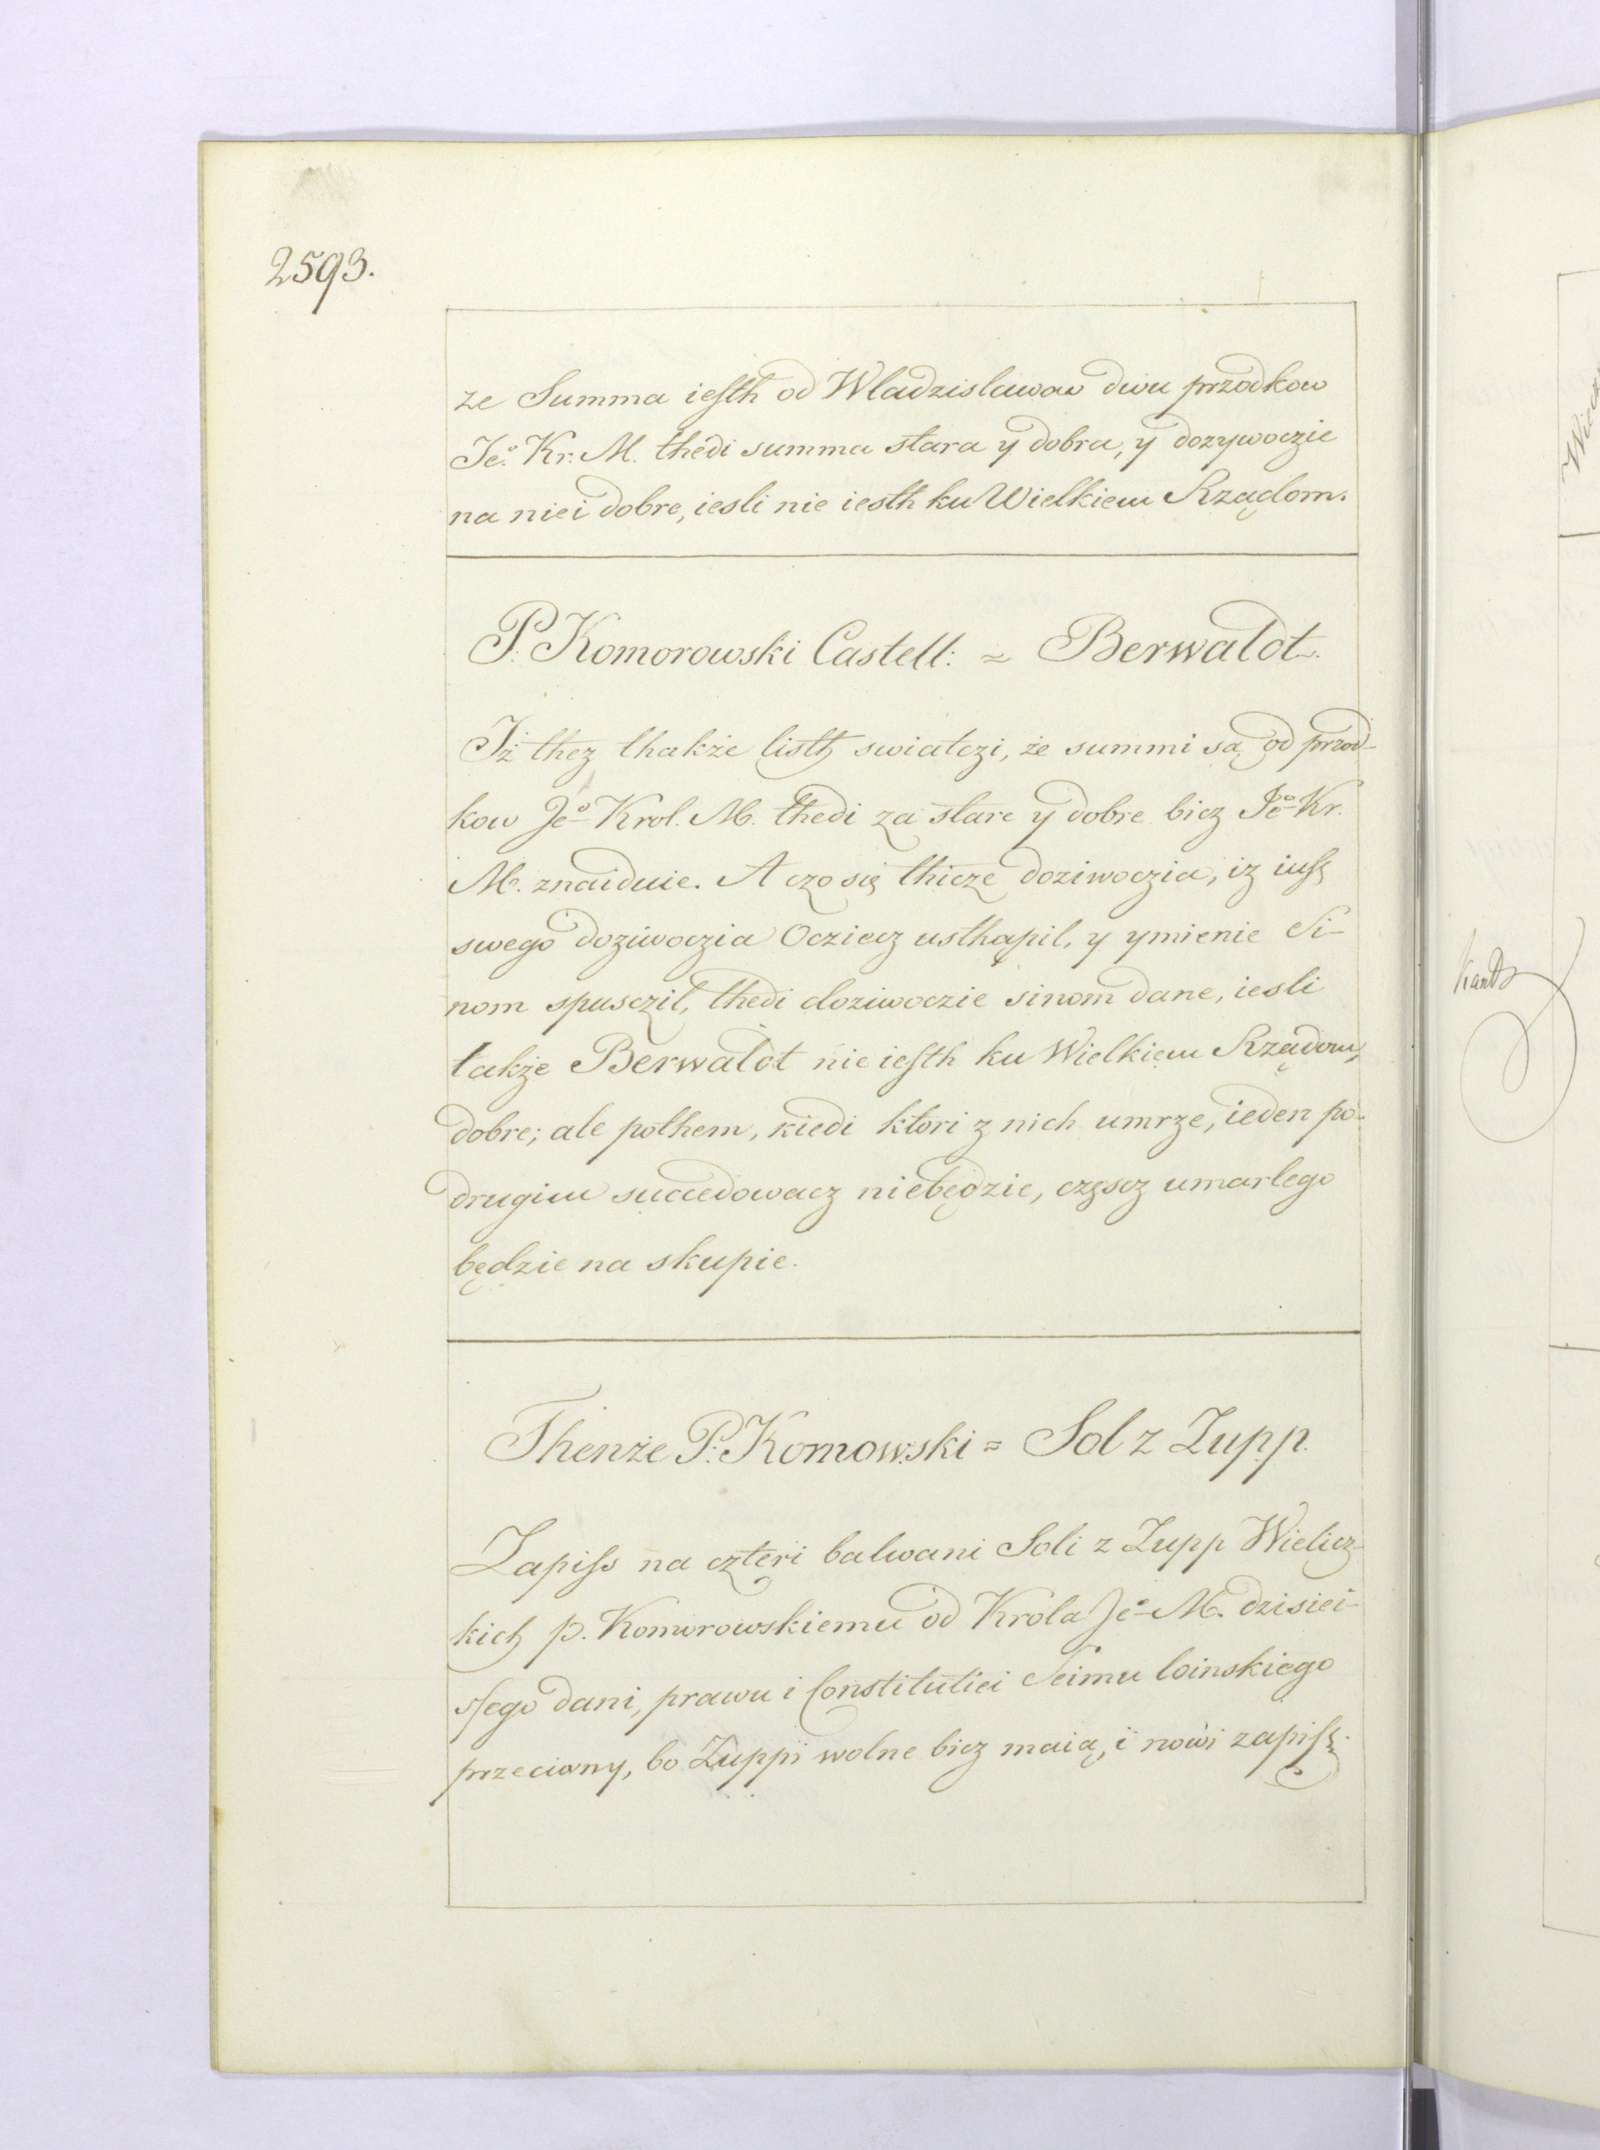 2593.
ze Summa iesth od Wladzislawow dwu przodkow
Jeº. Kr: M. thedi summa stara y dobra, y dozywoczie
na niei dobre, iesli nie iesth ku Wielkiem Rządom.
P: Komorowski Castell: = Berwaldt.
Jż thez thakże listh swiatczi, że summi są od przod-
kow Jeº Krol. M. thedi za stare y dobre bicz Jeº Kr.
M. znaiduie. A czo się thicze doziwoczia, iz iusz
swego doziwoczia Ocziecz usthąpil, y ymienie Si-
nom spusczil, thedi doziwoczie sinom dane, iesli
także Berwaldt nie iesth ku Wielkiem Rządom,
dobre; ale pothem, kiedi ktori z nich umrze, ieden po
drugim succedowacz niebędzie, częscz umarlego
będzie na skupie.
Thenże P: Komowski = Sol z Zupp.
Zapiss na czteri balwani Soli z Zupp Wielicz-
kich p. Komorowskiemu od Króla Jeº M. dzisiei-
ssego dani, prawu i Constitutiei Seimu
przeciwny, bo Zuppi wolne bicz maią, i nowi zapisz.